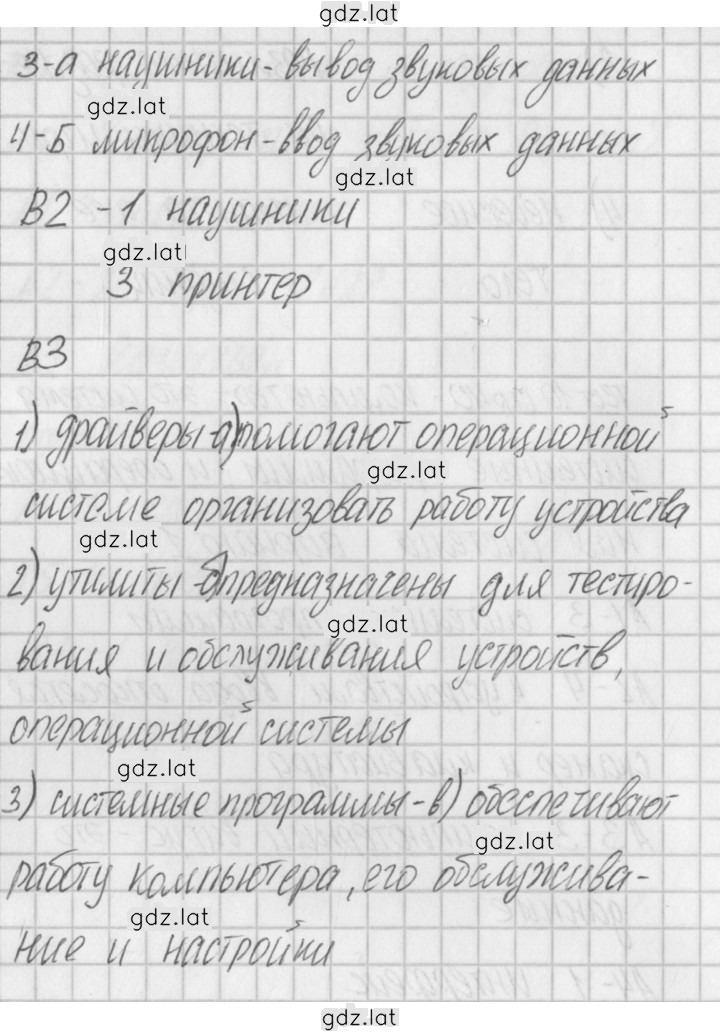 gdz.lat
3-а наушники-вывод звуковых данных
gdz.lat
4-Б микрофон-ввод звуковых данных
gdz.lat
В2 -1 наушники
gdz.lat
3 принтер
В3
1) драйверы-а)помогают операционной
gdz.lat
системе организовать работу устройства
gdz.lat
2) утилиты -б)предназначены для тестиро-
gdz.lat
вания и обслуживания устройств,
операционной системы
gdz.lat
3) системные программы-в) обеспечивают
gdz.lat
работу компьютера, его обслужива-
gdz.lat
ние и настройки
gdz.lat